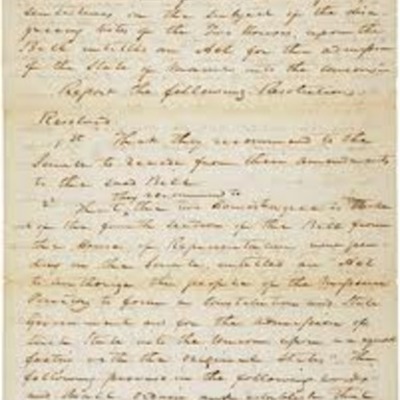 sentatives on the subject of the disa
greeing votes of the two houses, upon the
Bill entitled an Act for the admission
of the State of Maine into the Union
Report the following Resolution.
Resolved.
1st That they recommend to the
Senate to recede from their amendments
to the said Bill
they recommend to
2 That, the two Houses
of the fourth section of the Bill from
the House of Representatives now pen
ding in the Senate, entitled an Act
to authorize the people of the Missouri
Territory to form a Constitution and State
Government and for the admission of
such State into the Union upon an equal
footing with the original States" the
following proviso in the following words
and shall